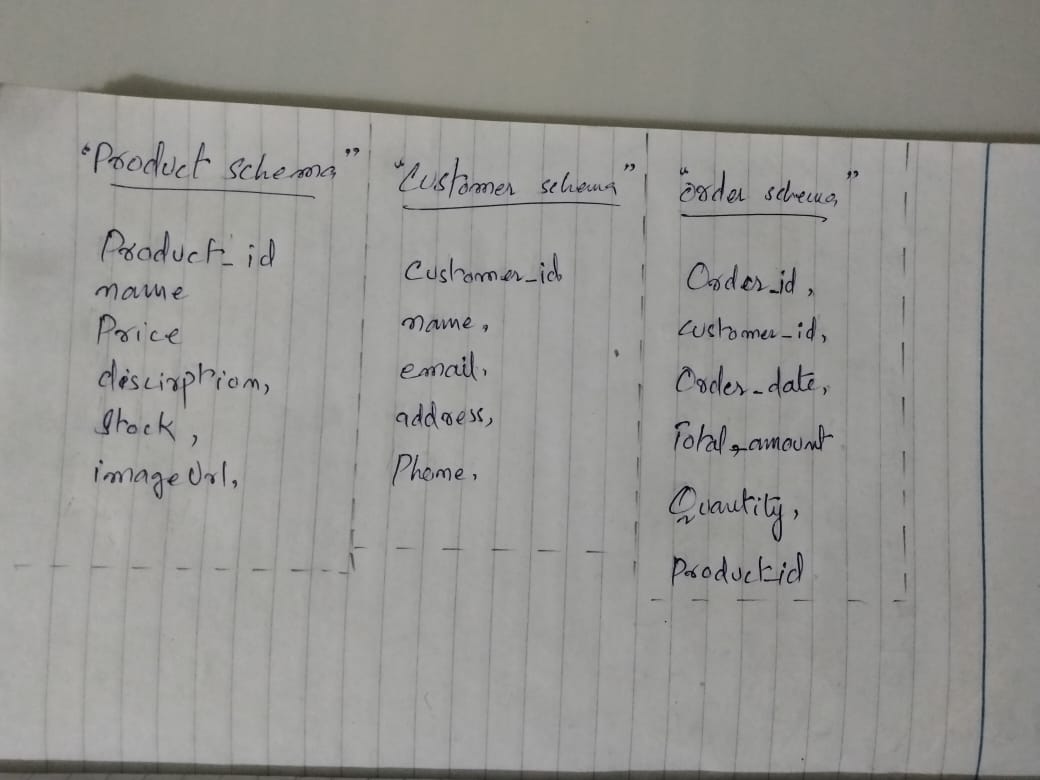 "Product schema"
Product_id
name
Price
discirption,
Stock,
imageUrl,
"Customer schema"
Customer_id
name,
email,
address,
Phone,
"order schema"
Order_id,
customer_id,
Order_date,
Total_amount
Quantity,
Product_id